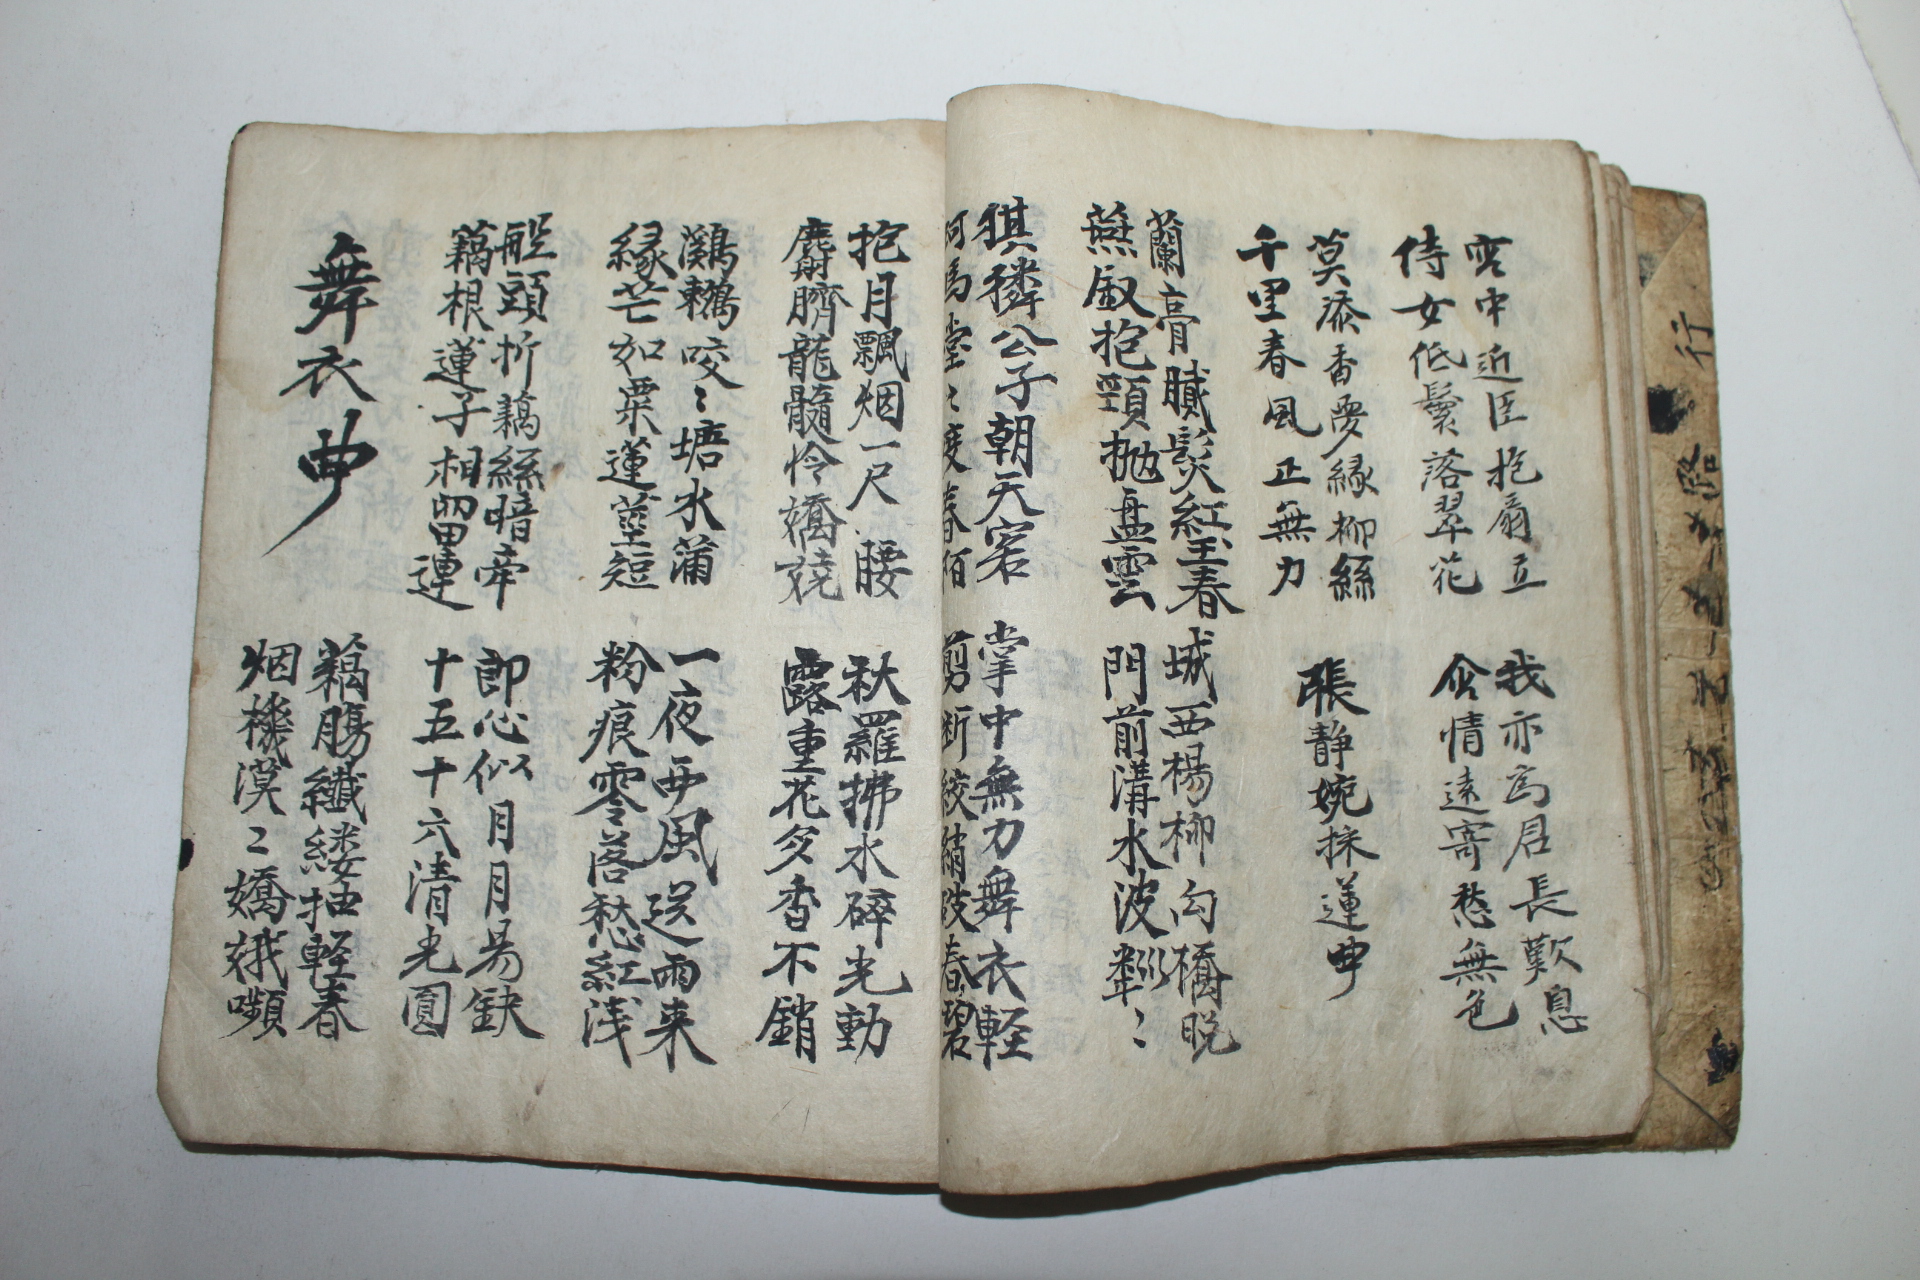 宮中近臣抱扇立
侍女低鬟落翠花
我亦為君長歎息
含情遠寄愁無色
莫添香夢緑柳絲
千里春風正無力
張静婉採蓮曲
蘭膏膩髮紅玉春
燕釵抱頸抛盘雲
城西楊柳向橋晚
門前溝水波粼〻
猉獜公子朝天客
珂馬璫〻度春陌
掌中無力舞衣軽
剪断絞綃破春碧
抱月飄烟一尺腰
麝臍龍髓怜嬌嬈
秋羅拂水碎光動
露重花多香不銷
鸂鶒咬〻塘水蒲
縁芒如粟蓮莖短
一夜西風送雨来
粉痕零落愁紅浅
船頭折藕絲暗牽
藕根蓮子相留連
郎心似月月易缺
十五十六清光圓
舞衣曲
藕腸纖縷抽軽春
烟機漠〻嬌娥嚬